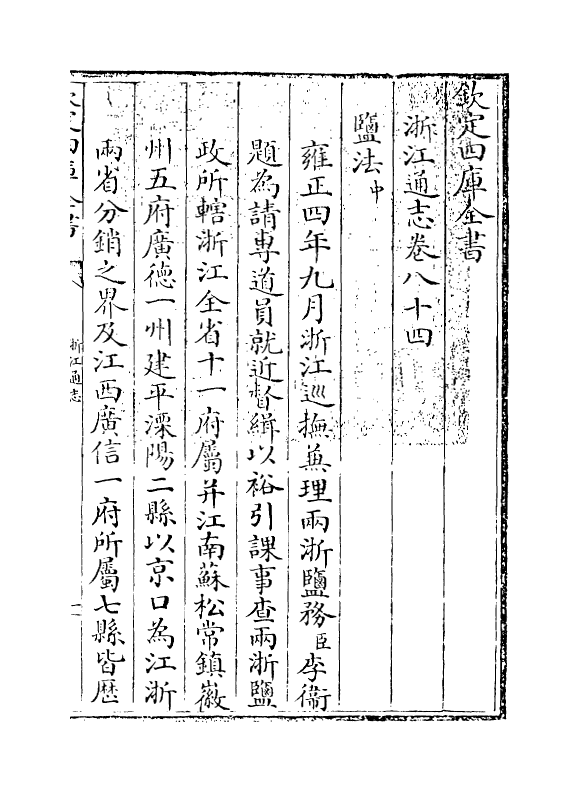 欽定四庫全書
浙江通志卷八十四
鹽法中
雍正四年九月浙江巡撫兼理兩浙鹽務臣李衞
題為請專道員就近督緝以裕引課事查兩浙鹽
政所轄浙江全省十一府屬并江南蘇松常鎮徽
州五府廣德一州建平溧陽二縣以京口為江浙
兩省分銷之界及江西廣信一府所屬七縣皆歷
浙江通志
一